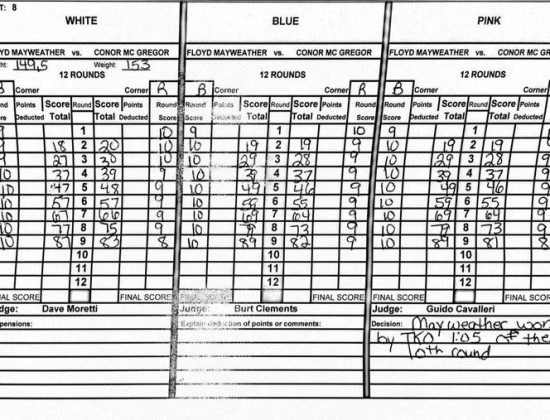 T: 8
WHITE BLUE PINK
OYD MAYWEATHER vs. CONOR MC GREGOR FLOYD MAYWEATHER vs. CONOR MC GREGOR FLOYD MAYWEATHER vs. CONOR MC GR
ht: 149,5 Weight: 153
12 ROUNDS 12 ROUNDS 12 ROUNDS
B Corner Corner R B Corner Corner R B Corner Corner
Round Score Points Deducted Score Total Round Score Total Points Deducted Round Score Round Score Points Deducted Score Total Round Score Total Points Deducted Round Score Round Score Points Deducted Score Total Round Score Total Points Deducted
9 1 10 9 1 10 9 1
9 18 2 20 10 10 19 2 19 9 10 19 2 19
9 27 3 30 10 10 29 3 28 9 10 29 3 28
10 37 4 39 9 10 39 4 37 9 10 39 4 37
10 47 5 48 9 10 49 5 46 9 10 49 5 46
10 57 6 57 9 10 59 6 55 9 10 59 6 55
10 67 7 66 9 10 69 7 64 9 10 69 7 64
10 77 8 75 9 10 79 8 73 9 10 79 8 73
10 87 9 83 8 10 89 9 82 9 10 89 9 81 8
10 10 10
11 11 11
12 12 12
NAL SCORE FINAL SCORE FINAL SCORE FINAL SCORE FINAL SCORE FINAL SCORE
dge: Dave Moretti Judge: Burt Clements Judge: Guido Cavalleri
pensions: Explain deduction of points or comments: Decision: Mayweather won
by TKO 1:05 of the
10th round